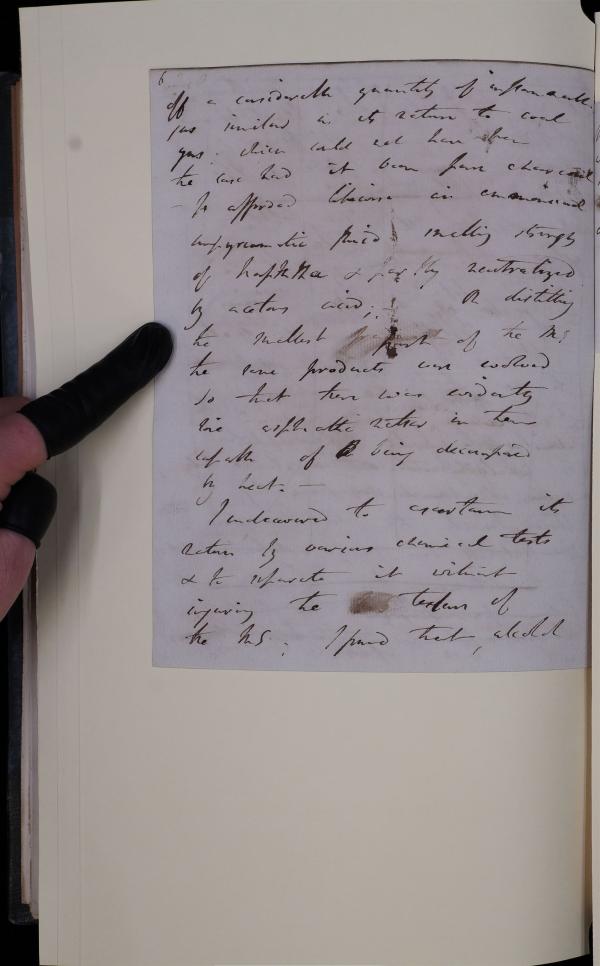 6
off a considerable quantity of inflammable
gas similar in its nature to coal
gas. which could not have been
the case had it been pure charcoal
- It afforded likewise an ammoniacal
empyreumatic fluid smelling strongly
of Naphtha & partly neutralized
by acetous acid; - On distilling
the smallest part of the MS
the same products were evolved
so that there was evidently
some asphaltic matter in them
capable of being decomposed
by heat. -
I endeavoured to ascertain its
nature by various chemical tests
& to separate it without
injuring the texture of
the MS; I found that, alcohol